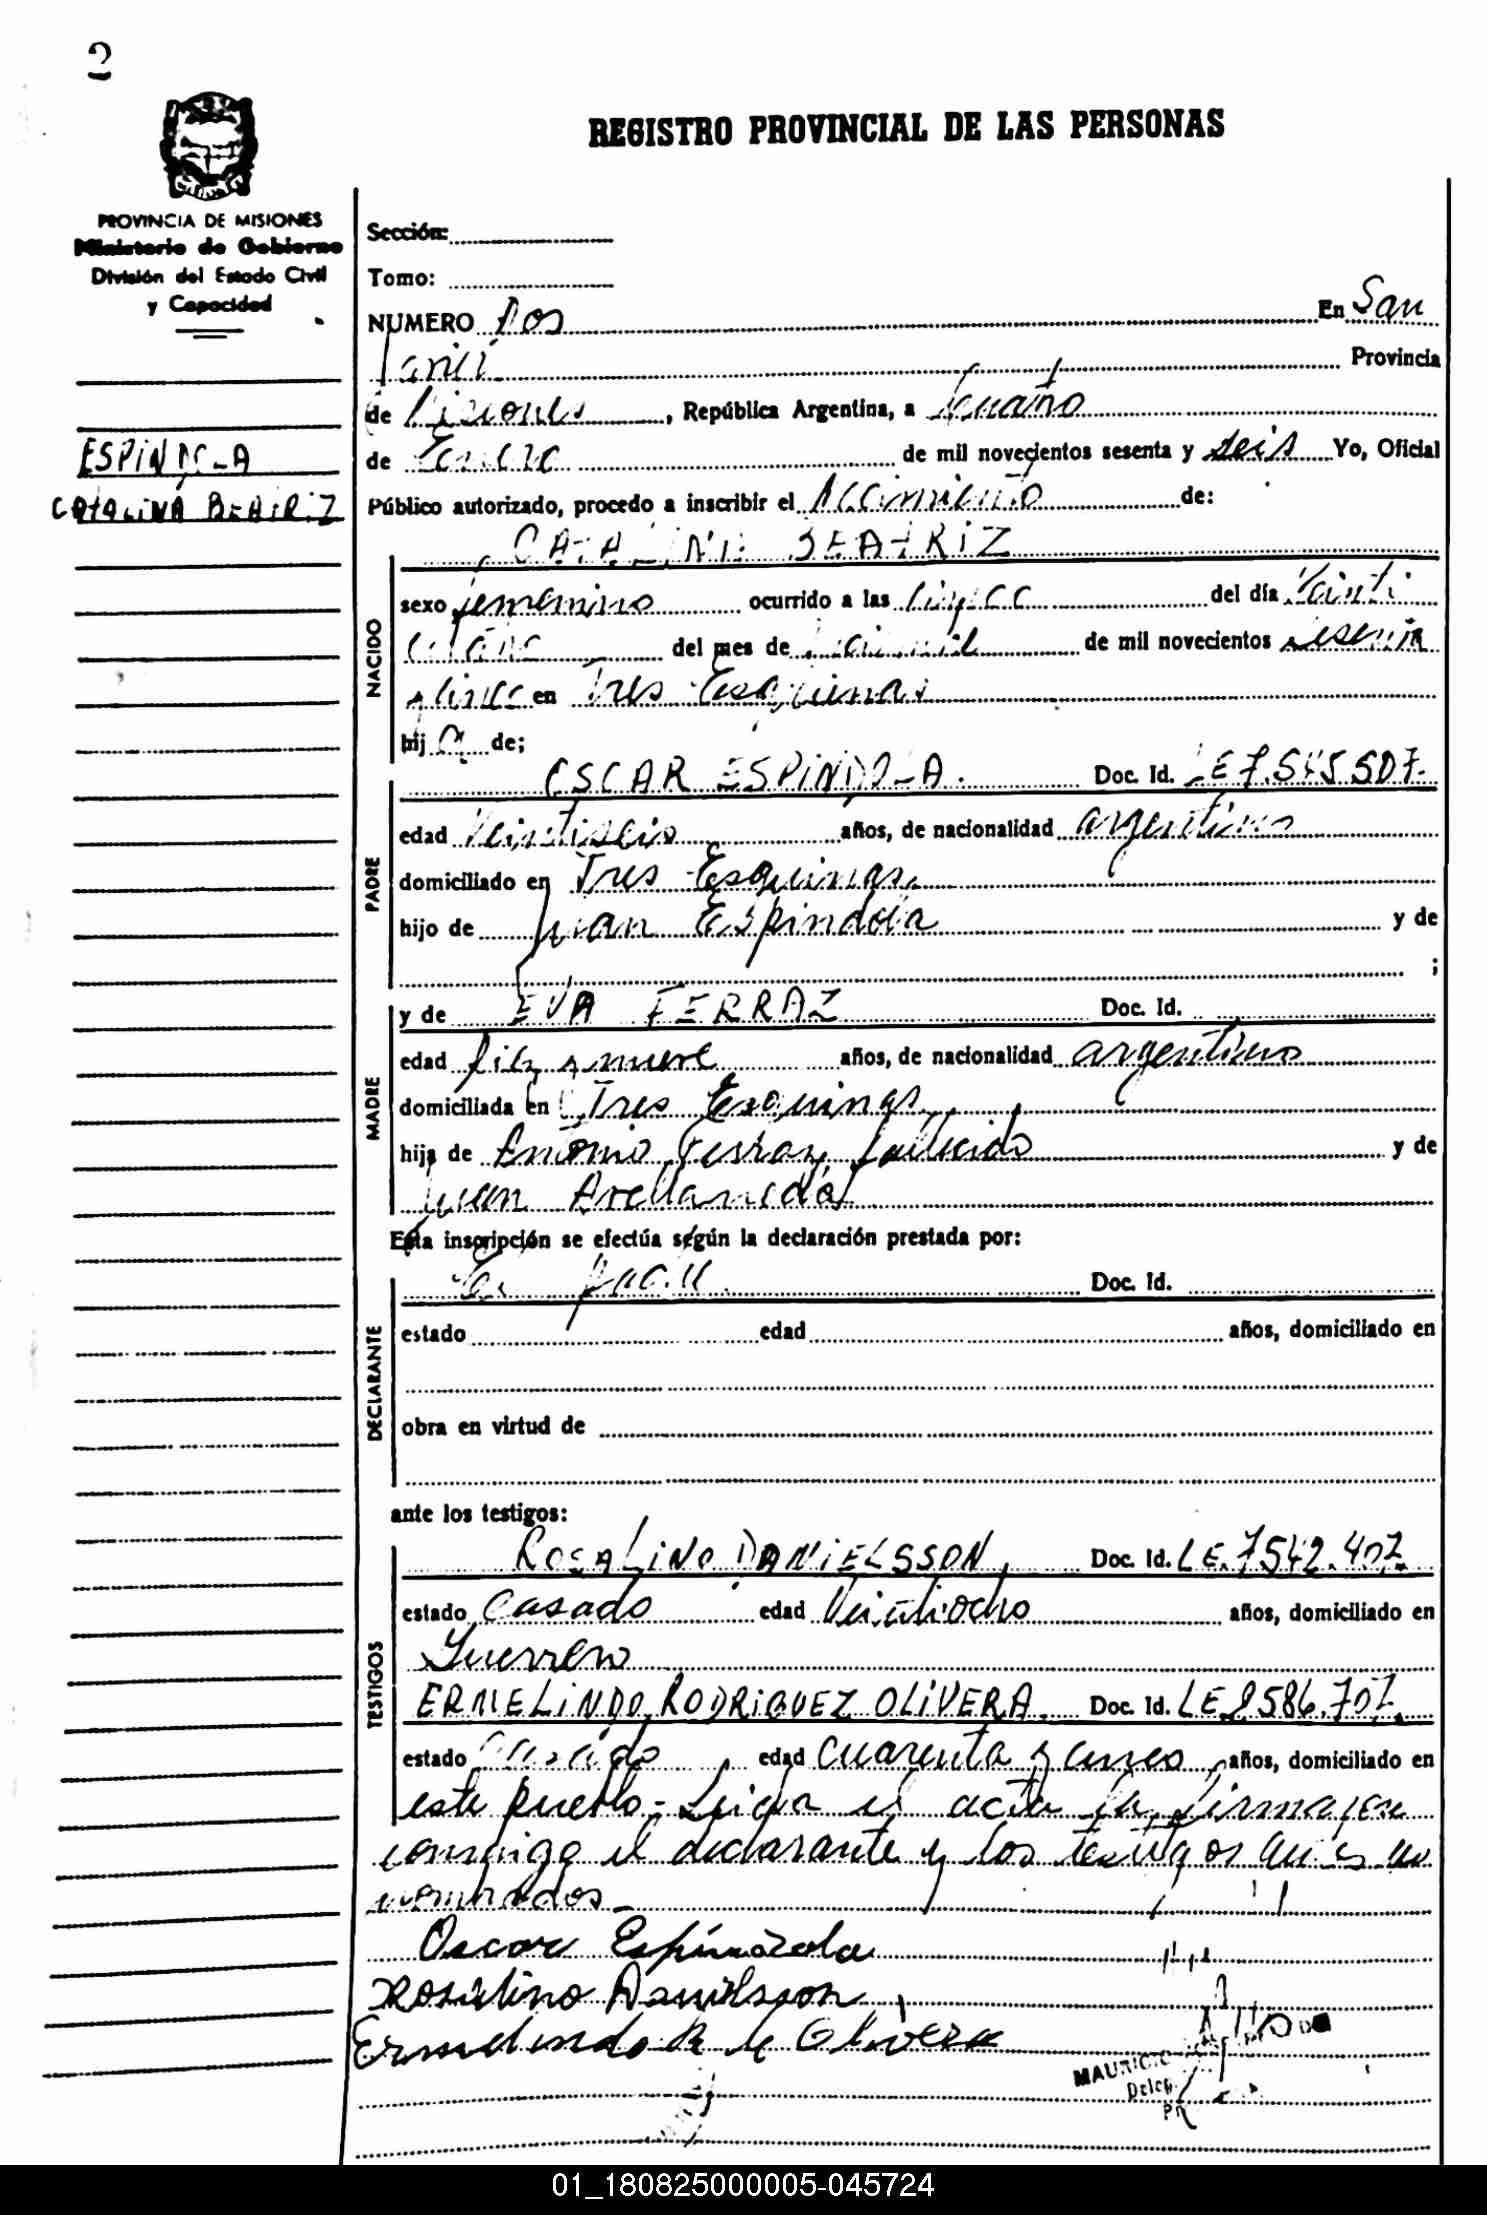 2
REGISTRO PROVINCIAL DE LAS PERSONAS
PROVINCIA DE MISIONES
Ministerio de Gobierno
División del Estado Civil
y Capacidad
ESPINDOLA
CATALINA BEATRIZ
Sección:
Tomo:
NUMERO Dos En San
Javier Provincia
de Misiones, República Argentina, a cuatro
de Enero de mil novecientos sesenta y seis Yo, Oficial
Público autorizado, procedo a inscribir el Nacimiento de:
CATALINA BEATRIZ
NACIDO
sexo femenino ocurrido a las cinco del día Veinti
cuatro del mes de de mil novecientos sesenta
y cinco en Tres Esquinas
hij a de;
OSCAR ESPINDOLA. Doc. Id. LE 7.545.507.
PADRE
edad Veintiseis años, de nacionalidad argentino
domiciliado en Tres Esquinas
hijo de Juan Espindola y de
;
y de EVA FERRAZ Doc. Id.
MADRE
edad diez y nueve años, de nacionalidad argentino
domiciliada en Tres Esquinas
hija de Antonio Ferraz, fallecido y de
Juan Avellaneda
Esta inscripción se efectúa según la declaración prestada por:
El padre Doc. Id.
DECLARANTE
estado edad años, domiciliado en
obra en virtud de
ante los testigos:
ROSALINO DANIELSSON, Doc. Id. LE. 7542.407.
TESTIGOS
estado Casado edad Veintiocho años, domiciliado en
Guerrero
ERMELINDO RODRIGUEZ OLIVERA. Doc. Id. LE 2586.707.
estado Casado edad cuarenta y cinco, años, domiciliado en
este pueblo.- Leida el acta la firmaron
conmigo el declarante y los testigos
nombrados.-
Oscar Espíndola
Rosalino Danielsson
Ermelindo R de Olivera
MAURICIO
Deleg.
01_180825000005-045724